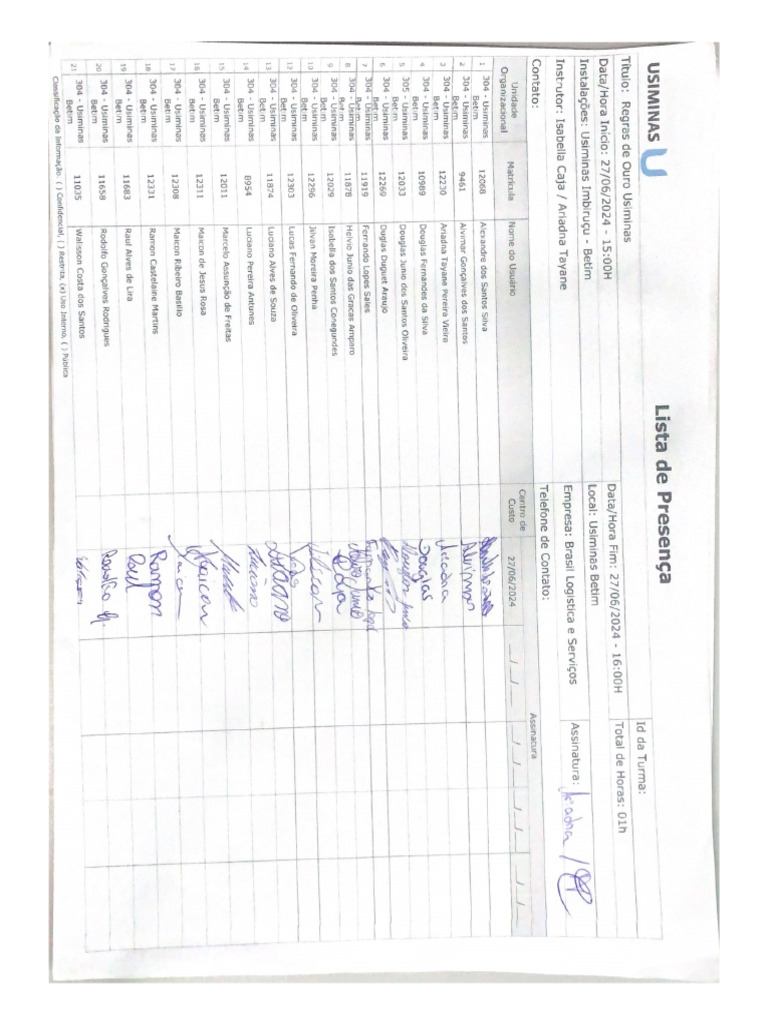 USIMINAS
Lista de Presença
Id da Turma:
Título: Regras de Ouro Usiminas
Data/Hora Inicio: 27/06/2024 - 15:00H Data/Hora Fim: 27/06/2024 - 16:00H Total de Horas: 01h
Instalações: Usiminas Imbiruçu - Betim Local: Usiminas Betim
Instrutor: Isabella Caja / Ariadna Tayane Empresa: Brasil Logistica e Serviços Assinatura: Ariadna /
Contato: Telefone de Contato:
Unidade Organizacional Matrícula Nome do Usuário Centro de Custo Assinatura
27/06/2024 __/__/__ __/__/__ __/__/__ __/__/__
1 304 - Usiminas Betim 12068 Alexandre dos Santos Silva
2 304 - Usiminas Betim 9461 Alvimar Gonçalves dos Santos Alvimar
3 304 - Usiminas Betim 12230 Ariadna Tayane Pereira Vieira Ariadna
4 304 - Usiminas Betim 10989 Douglas Fernandes da Silva Douglas
5 305 - Usiminas Betim 12033 Douglas Junio dos Santos Oliveira
6 304 - Usiminas Betim 12269 Duglas Duguet Araujo
7 304 - Usiminas Betim 11919 Fernando Lopes Sales
8 304 - Usiminas Betim 11878 Helvio Junio das Gracas Amparo
9 304 - Usiminas Betim 12029 Isabella dos Santos Conegundes
10 304 - Usiminas Betim 12296 Jilvan Moreira Penha
12 304 - Usiminas Betim 12303 Lucas Fernando de Oliveira
13 304 - Usiminas Betim 11874 Luciano Alves de Souza
14 304 - Usiminas Betim 8954 Luciano Pereira Antunes Luciano
15 304 - Usiminas Betim 12011 Marcelo Assunção de Freitas
16 304 - Usiminas Betim 12311 Maicon de Jesus Rosa Maicon
17 304 - Usiminas Betim 12308 Maicon Ribeiro Basilio
18 304 - Usiminas Betim 12331 Ramon Castelaine Martins Ramon
19 304 - Usiminas Betim 11683 Raul Alves de Lira Raul
20 304 - Usiminas Betim 11658 Rodolfo Gonçalves Rodrigues
21 304 - Usiminas Betim 11035 Walisson Costa dos Santos
Classificação da Informação. ( ) Confidencial, ( ) Restrita, (x) Uso Interno, ( ) Pública